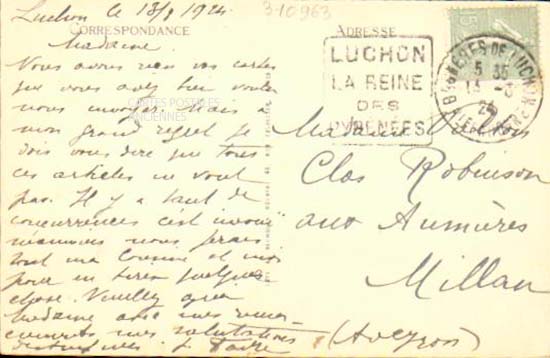 Luchon le 13/9 1924
3-10963
CORRESPONDANCE
ADRESSE
Madame
Nous avons reçu vos cartes
que vous avez bien voulu
nous envoyer. Mais à
mon grand regret je
dois vous dire que tous
ces articles ne vont
pas. Il y a tant de
concurrences c'est inouï
néanmoins nous ferons
tout ma cousine et moi
pour en tirer quelque
chose. Veuillez agréer
Madame avec mes remer
ciements mes salutations
distinguées.
CARTES POSTALES
ANCIENNES
LUCHON
LA REINE
DES
PYRENÉES
BAGNÈRES DE LUCHON
5 35
13 -9
24
Hte GARONNE
5c
Madame
Clos Robinson
aux Aumières
Millau
(Aveyron)